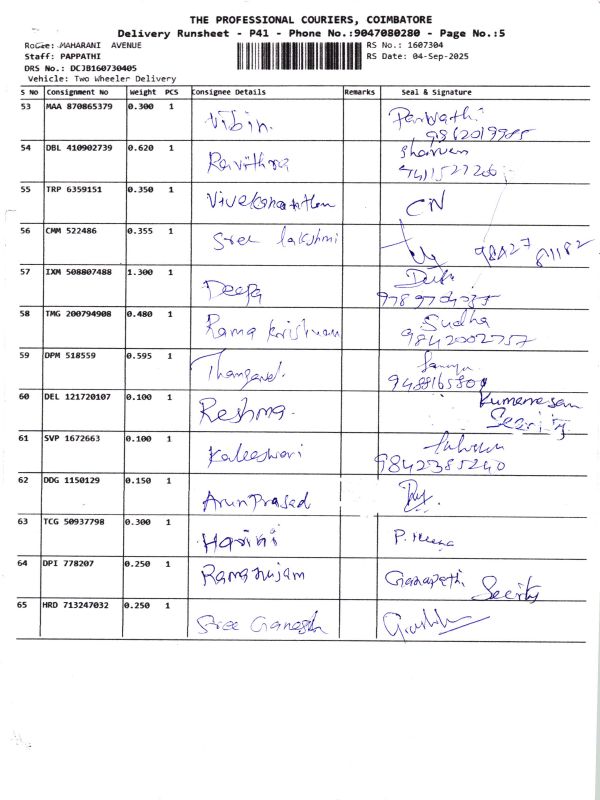 THE PROFESSIONAL COURIERS, COIMBATORE
Delivery Runsheet - P41 - Phone No.:9047080280 - Page No.:5
Route: MAHARANI AVENUE RS No.: 1607304
Staff: PAPPATHI RS Date: 04-Sep-2025
DRS No.: DCJB160730405
Vehicle: Two Wheeler Delivery
S No Consignment No Weight PCS Consignee Details Remarks Seal & Signature
53 MAA 870865379 0.300 1 Vibin. Parvathi
54 DBL 410902739 0.620 1 Pavithra
55 TRP 6359151 0.350 1 Vivekanathan CN
56 CMM 522486 0.355 1 Sree lakshmi
57 IXM 508807488 1.300 1 Deepa
58 TMG 200794908 0.480 1 Rama krishnan Sudha
9842002757
59 DPM 518559 0.595 1 Thangavel.
60 DEL 121720107 0.100 1 Reshma. Kumaresan
61 SVP 1672663 0.100 1 Kaleeswari
9842385240
62 DDG 1150129 0.150 1 Arun Prasad
63 TCG 50937798 0.300 1 Harini P. Meena
64 DPI 778207 0.250 1 Ramanujam Ganapathi
65 HRD 713247032 0.250 1 Sree Ganesh